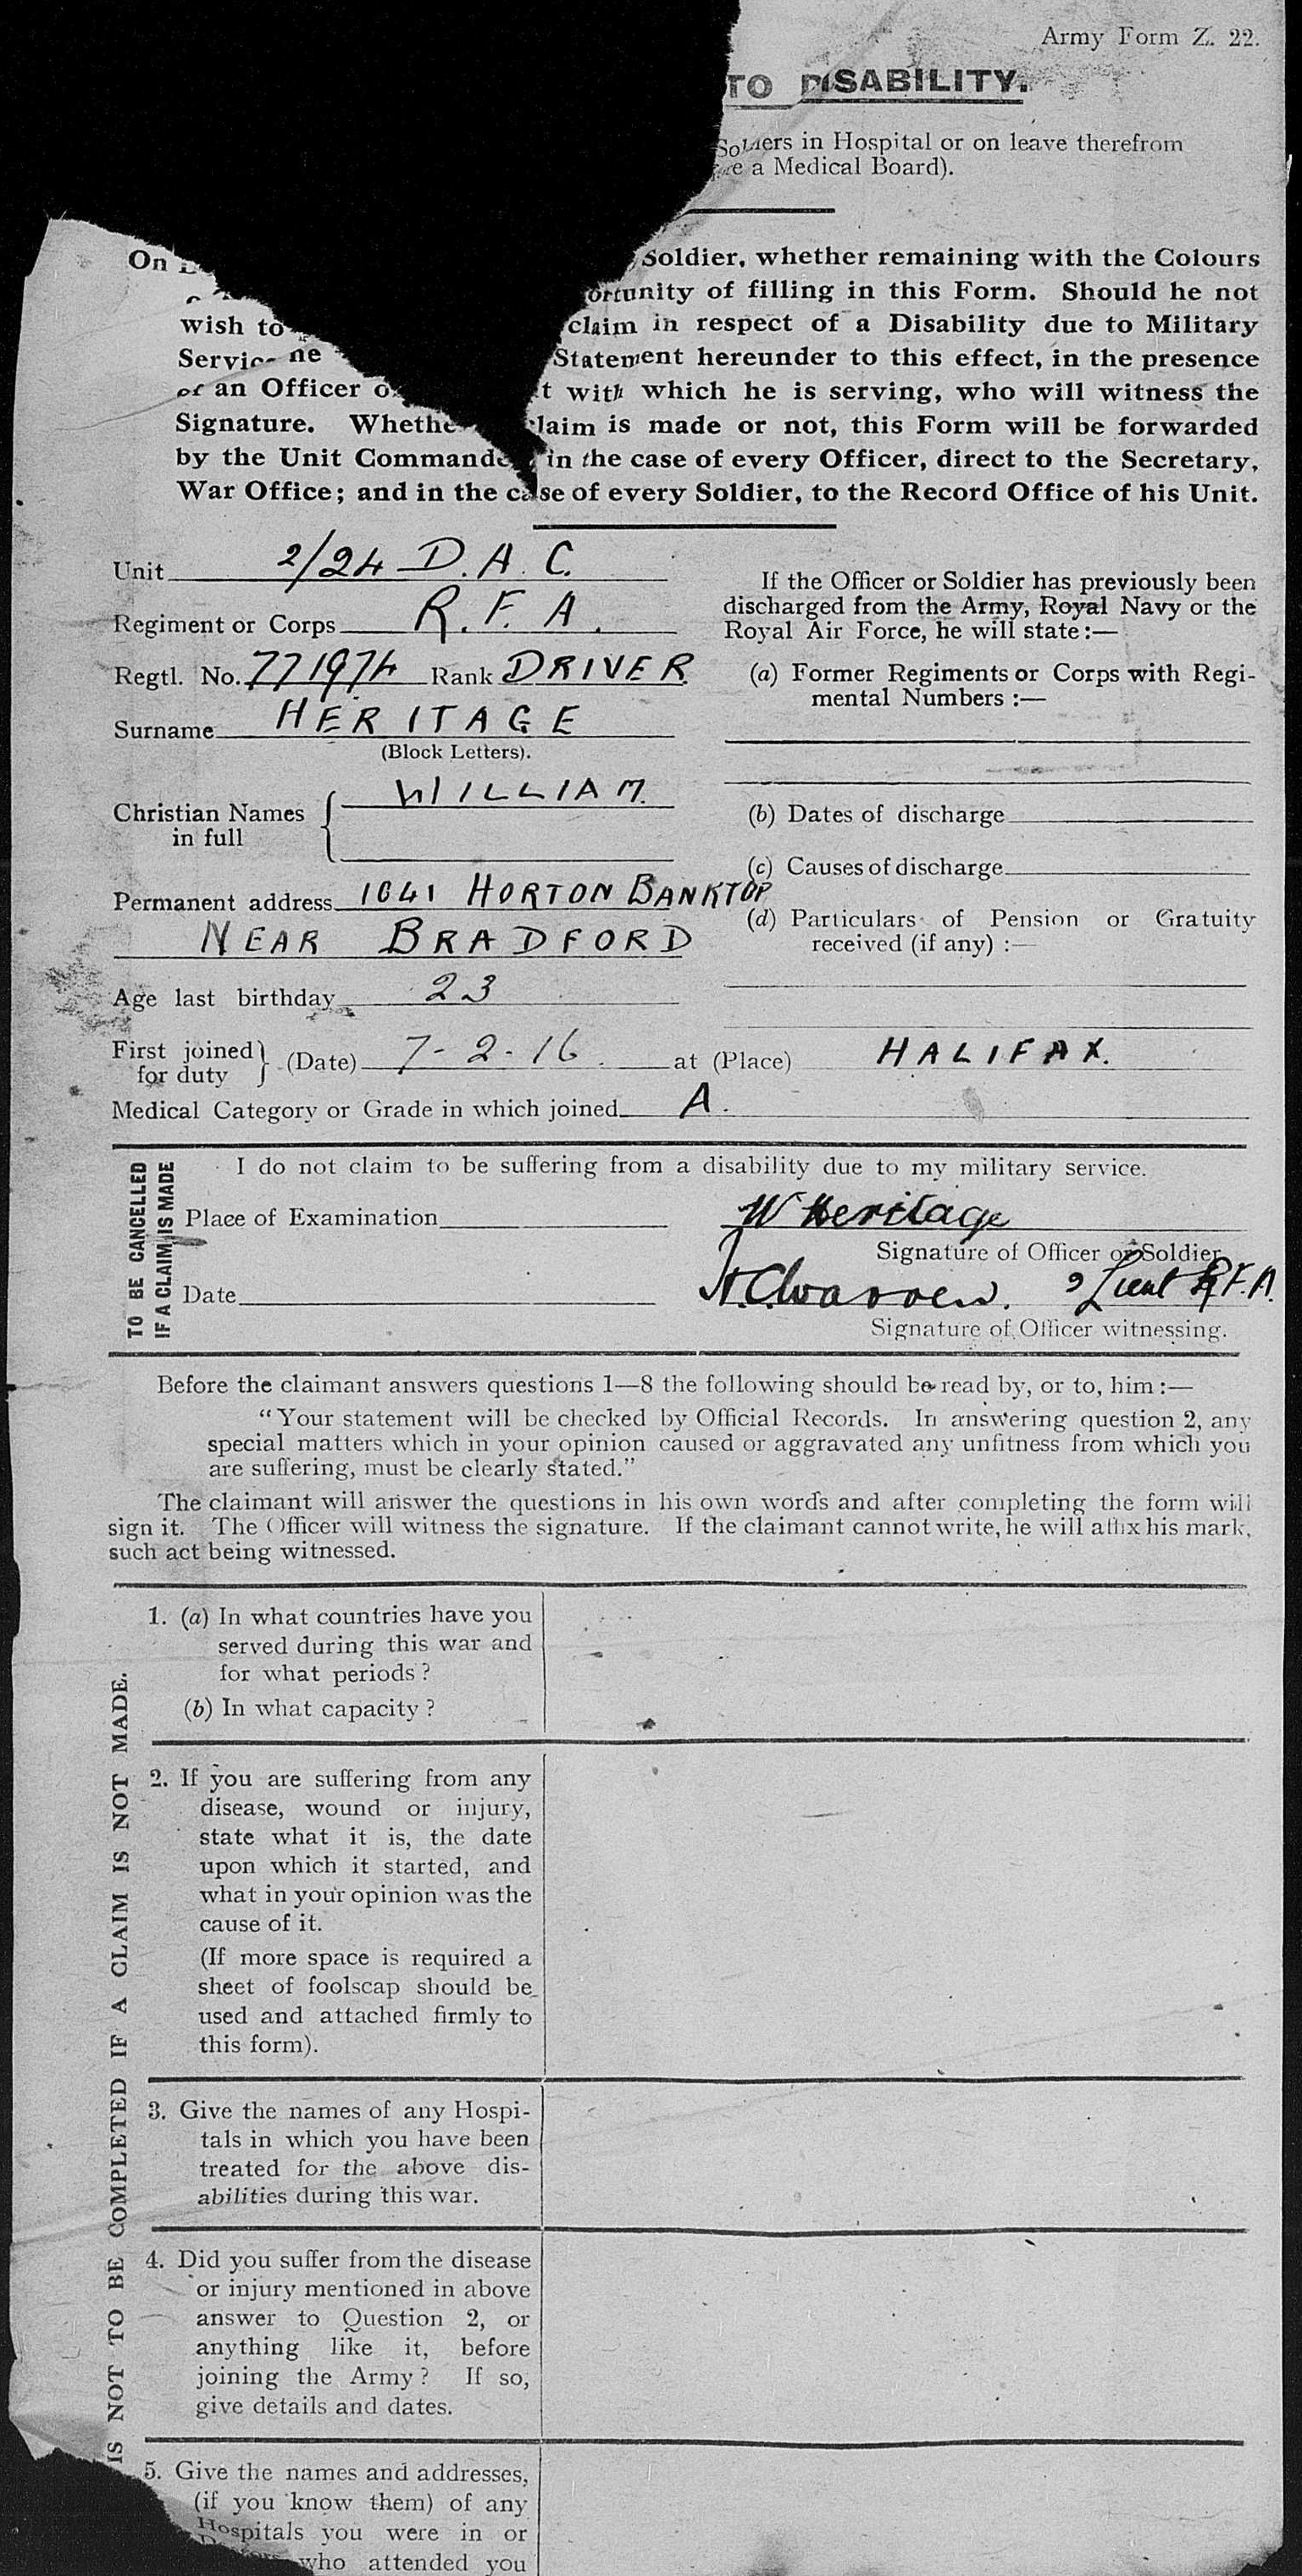 Army Form Z. 22.
TO DISABILITY.
Soldiers in Hospital or on leave therefrom
a Medical Board).
On Soldier, whether remaining with the Colours
of filling in this Form. Should he not
wish to claim in respect of a Disability due to Military
Statement hereunder to this effect, in the presence
of an Officer with which he is serving, who will witness the
Signature. claim is made or not, this Form will be forwarded
by the Unit in the case of every Officer, direct to the Secretary,
War Office; and in the case of every Soldier, to the Record Office of his Unit.
Unit 2/24 D.A.C.
Regiment or Corps R.F.A.
Regtl. No. 771974 Rank DRIVER
Surname HERITAGE
(Block Letters).
Christian Names in full { WILLIAM.
Permanent address 1041 HORTON BANKTOP
NEAR BRADFORD
Age last birthday 23
If the Officer or Soldier has previously been
discharged from the Army, Royal Navy or the
Royal Air Force, he will state:—
(a) Former Regiments or Corps with Regi-
mental Numbers :—
(b) Dates of discharge
(c) Causes of discharge
(d) Particulars of Pension or Gratuity
received (if any) :—
First joined for duty } (Date) 7-2-16. at (Place) HALIFAX.
Medical Category or Grade in which joined A.
TO BE CANCELLED
IF A CLAIM IS MADE
I do not claim to be suffering from a disability due to my military service.
Place of Examination W Heritage
Signature of Officer or Soldier
Date 2 Lieut R.F.A.
Signature of Officer witnessing.
Before the claimant answers questions 1—8 the following should be read by, or to, him :—
"Your statement will be checked by Official Records. In answering question 2, any
special matters which in your opinion caused or aggravated any unfitness from which you
are suffering, must be clearly stated."
The claimant will answer the questions in his own words and after completing the form will
sign it. The Officer will witness the signature. If the claimant cannot write, he will affix his mark,
such act being witnessed.
IS NOT TO BE COMPLETED IF A CLAIM IS NOT MADE.
1. (a) In what countries have you
served during this war and
for what periods?
(b) In what capacity?
2. If you are suffering from any
disease, wound or injury,
state what it is, the date
upon which it started, and
what in your opinion was the
cause of it.
(If more space is required a
sheet of foolscap should be
used and attached firmly to
this form).
3. Give the names of any Hospi-
tals in which you have been
treated for the above dis-
abilities during this war.
4. Did you suffer from the disease
or injury mentioned in above
answer to Question 2, or
anything like it, before
joining the Army? If so,
give details and dates.
5. Give the names and addresses,
(if you know them) of any
Hospitals you were in or
who attended you